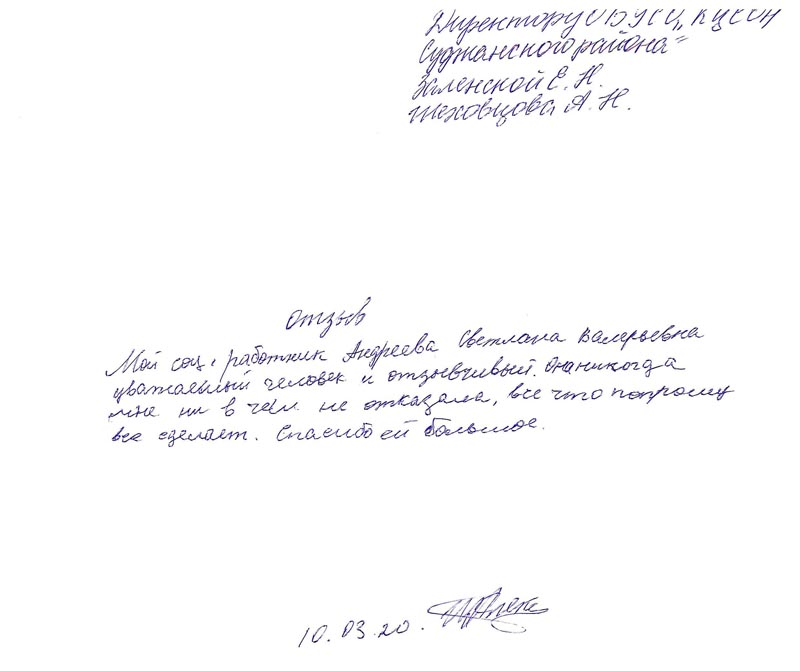 Директору ОБУСО „КЦСОН
Суджанского района"
Заленской Е. Н.
Шеховцова А. Н.
отзыв
Мой соц. работник Андреева Светлана Валерьевна
уважаемый человек и отзывчивый. Она никогда
мне ни в чем не отказала, все что попрошу
все сделает. Спасибо ей большое.
10.03.20.